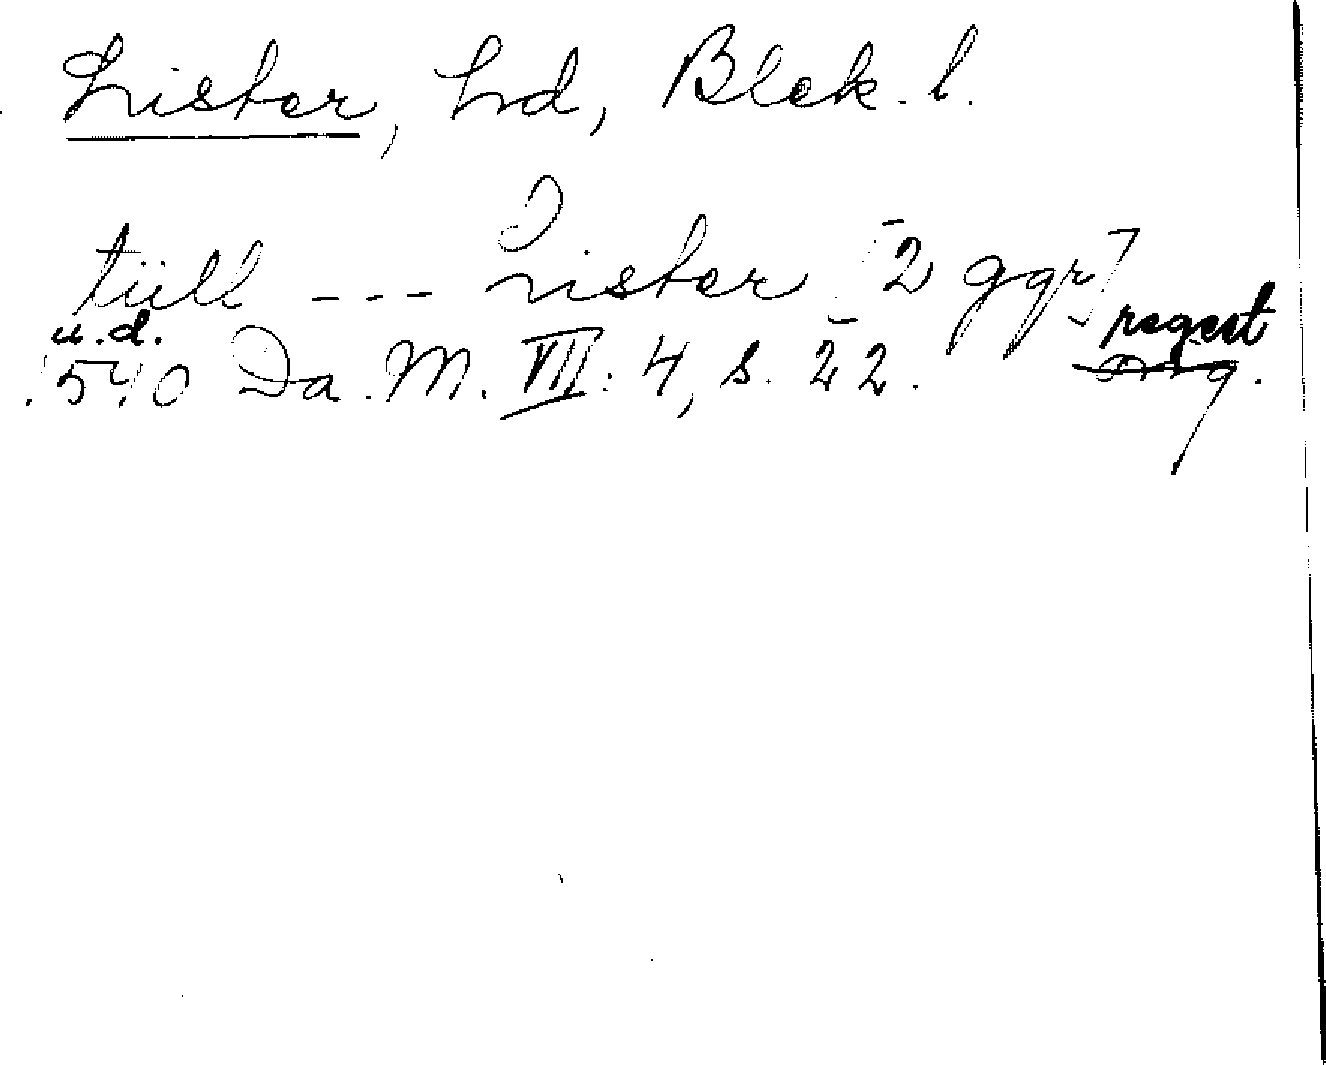 Lister, hd, Blek. l.
tiill --- Lister [2 ggr]
u.d. regest
1540 Da. M. VII: 4, s. 22.